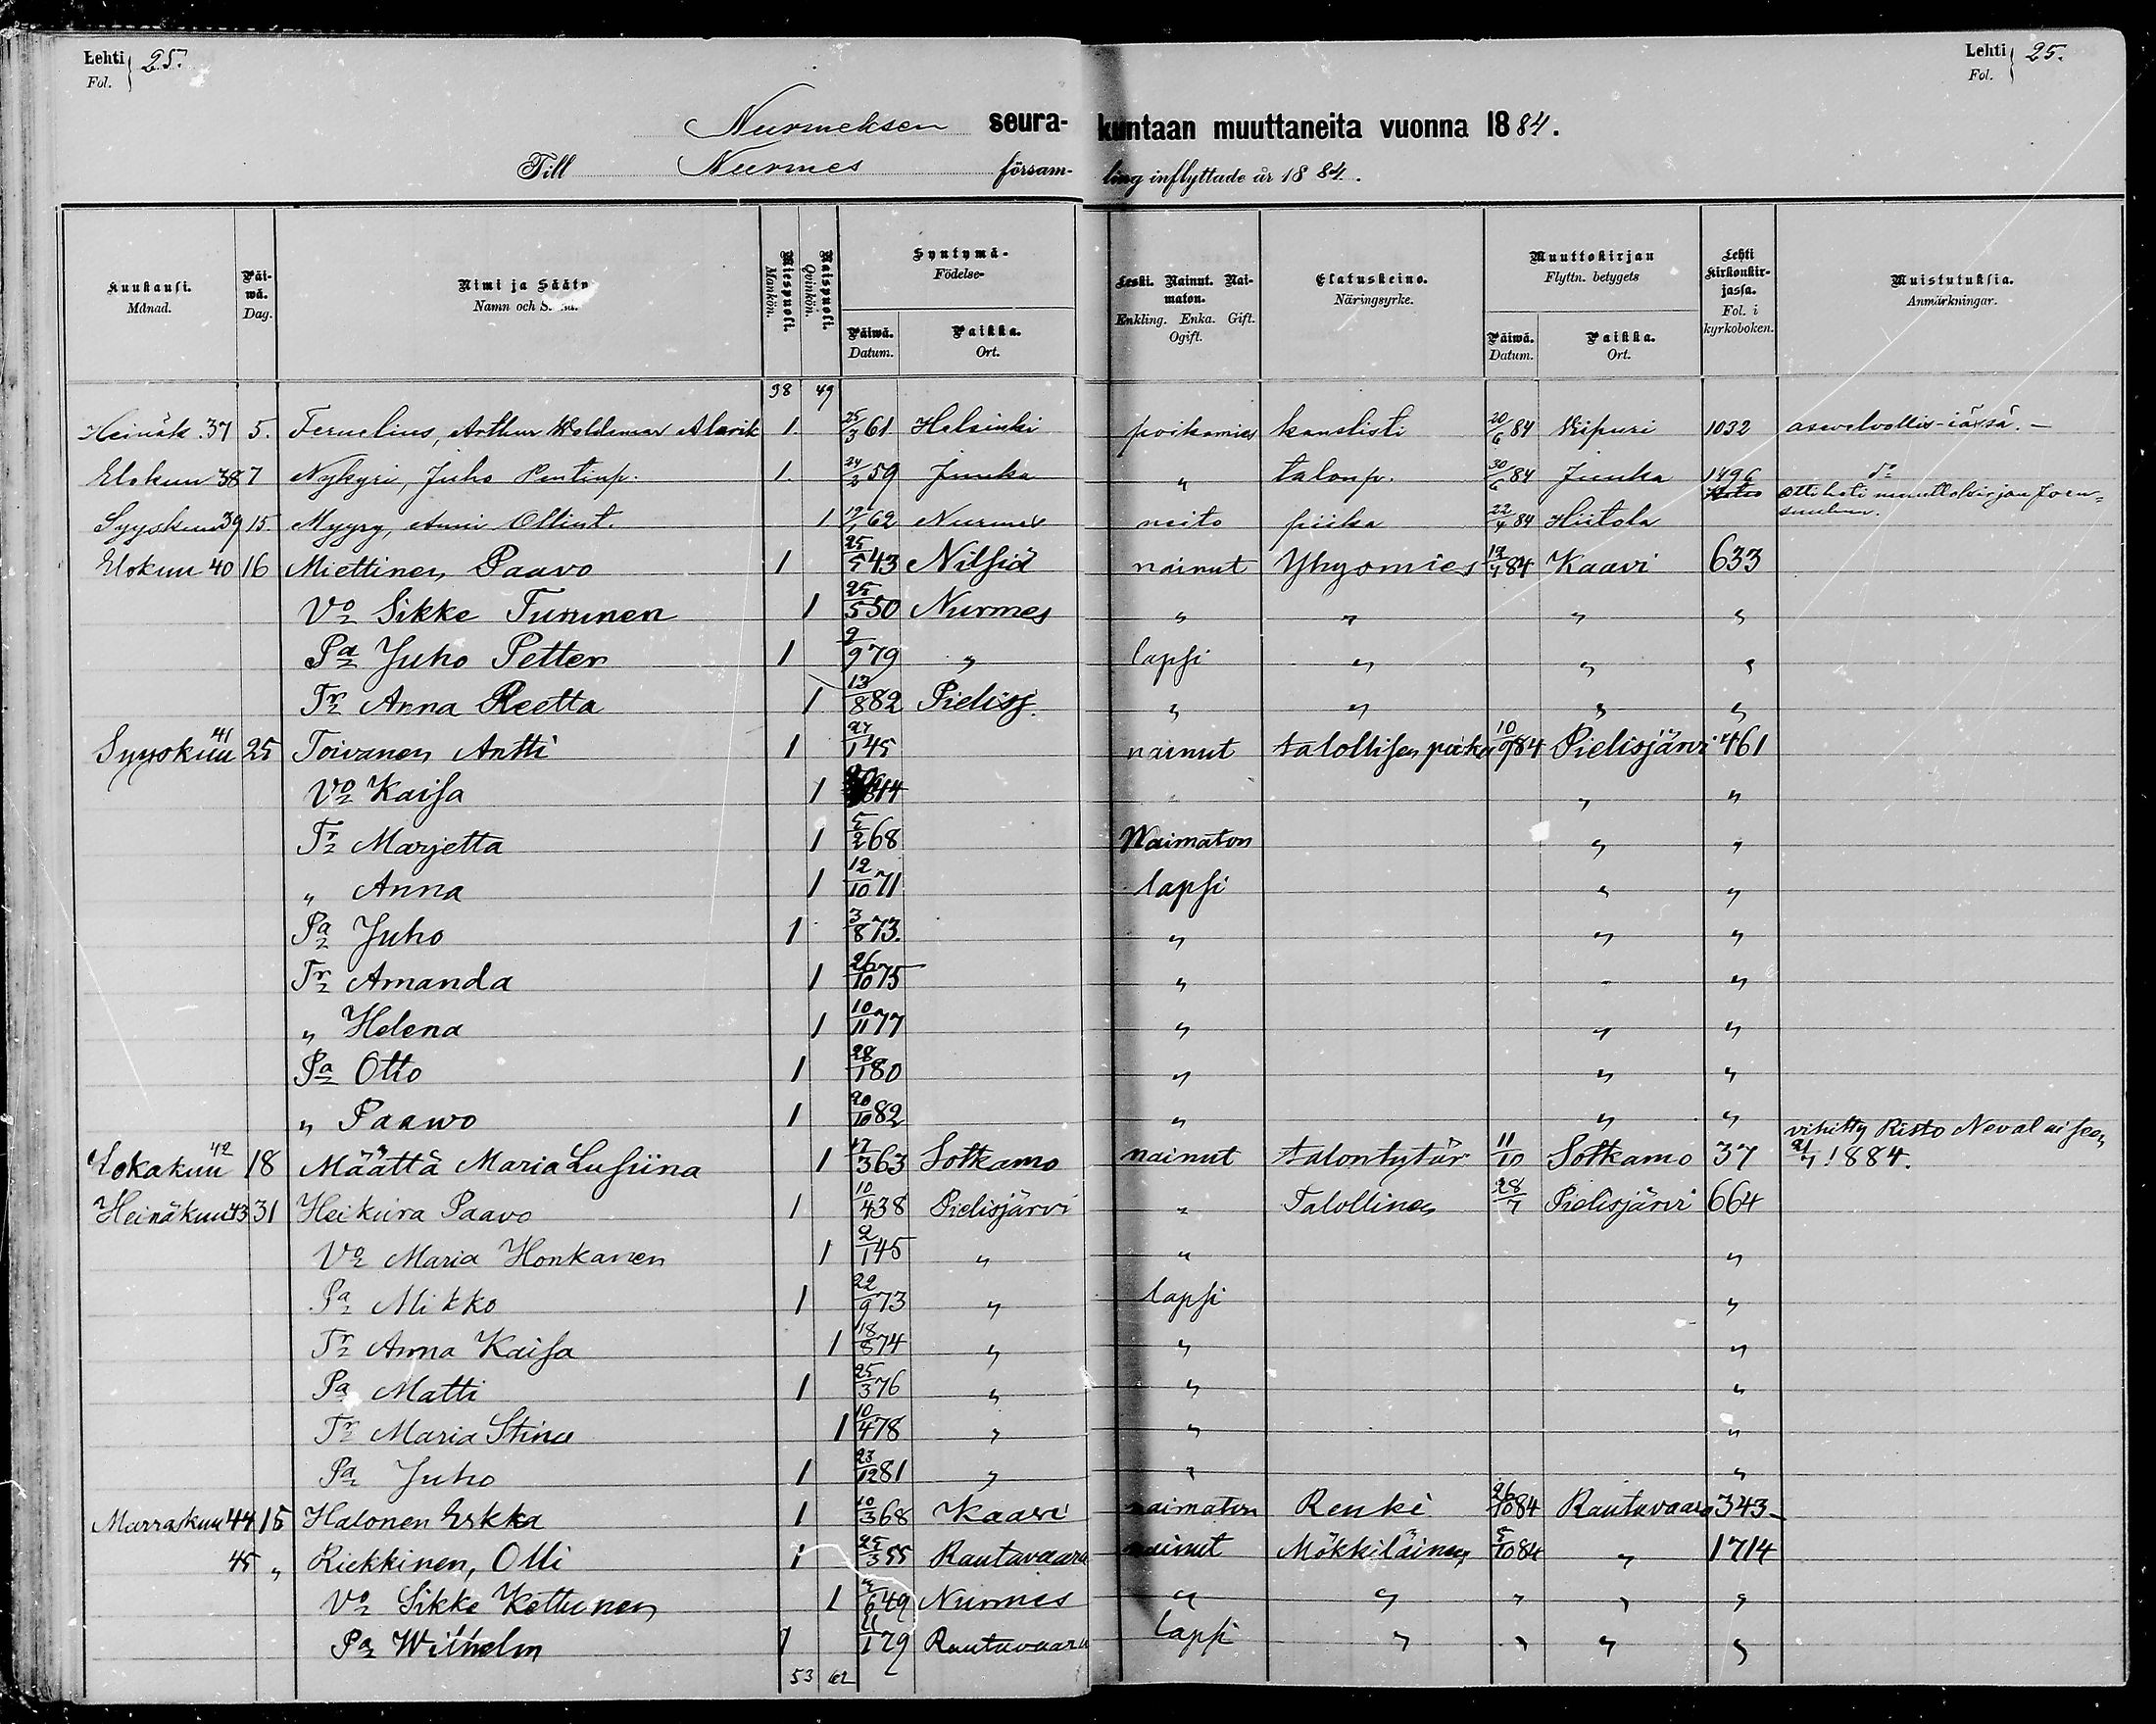 Lehti Fol. } 25.
Lehti Fol. } 25.
Nurmeksen seura- kuntaan muuttaneita vuonna 1884.
Till Nurmes försam- ling inflyttade år 1884.
Kuukausi. Månad. | Päi-wä. Dag. | Nimi ja Sääty Namn och | Miespuoli. Mankön. | Naispuoli. Qvinkön. | Syntymä- Födelse- Päiwä. Datum. | Paikka. Ort. | Leski. Nainut. Nai-maton. Enkling. Enka. Gift. Ogift. | Elatuskeino. Näringsyrke. | Muuttokirjan Flyttn. betygets Päiwä. Datum. | Paikka. Ort. | Lehti kirkonkir-jassa. Fol. i kyrkoboken. | Muistutuksia. Anmärkningar.
38 49
Heinäk. 37 5. Fernelius, Arthur Woldemar Alarik 1. 25/3 61 Helsinki poikamies kanslisti 20/6 84 Wiipuri 1032 asewelvollis-iässä. –
Elokuu 38 7 Nykyri, Juho Pentinp. 1. 24/2 59 Juuka " talonp. 30/6 84 Juuka 1496 do
Syyskuu 39 15. Myyry, Anni Ollint. 1 62 Nurmes neito piika 22/4 84 Hiitola otti heti muuttokirjan Joen=suuhun.
Elokuu 40 16 Miettinen Paavo 1 25/5 43 Nilsiä nainut Yhyomies 12/4 84 Kaavi 633
Vo Sikke Turunen 1 25/5 50 Nurmes " " " "
Pa Juho Petter 1 9/9 79 " lapsi " " "
Tr Anna Reetta 1 13/8 82 Pielisj. " " " "
Syyskuu 41 25 Toivanen Antti 1 27/1 45 nainut talollisen poika 10/9 84 Pielisjärvi 461
Vo Kaisa 1 44 " "
Tr Marjetta 1 5/2 68 Naimaton " "
" Anna 1 12/10 71 lapsi " "
Pa Juho 1 3/8 73. " " "
Tr Amanda 1 26/10 75 " " "
" Helena 1 10/11 77 " " "
Pa Otto 1 28/1 80 " " "
" Paawo 1 20/10 82 " " "
Lokakuu 42 18 Määttä Maria Lusiina 1 17/3 63 Sotkamo nainut talontytär 11/10 Sotkamo 37 vihitty Risto Nevalaiseen 21/7 1884.
Heinäkuu 43 31 Heikura Paavo 1 10/4 38 Pielisjärvi " Talollinen 28/7 Pielisjärvi 664
Vo Maria Honkanen 1 2/1 45 " " "
Pa Mikko 1 22/9 73 " lapsi "
Tr Anna Kaisa 1 18/8 74 " " "
Pa Matti 1 25/3 76 " " "
Tr Maria Stina 1 10/4 78 " " "
Pa Juho 1 23/12 81 " " "
Marraskuu 44 15 Halonen Erkka 1 10/3 68 Kaavi naimaton Renki 26/10 84 Rautavaara 343 –
45 " Riekkinen, Olli 1 25/3 55 Rautavaara nainut Mökkiläinen 5/10 84 " 1714
Vo Sikke Kettunen 1 /6 49 Nurmes " " " " "
Pa Wilhelm 1 11/1 79 Rautavaara lapsi " " " "
53 62